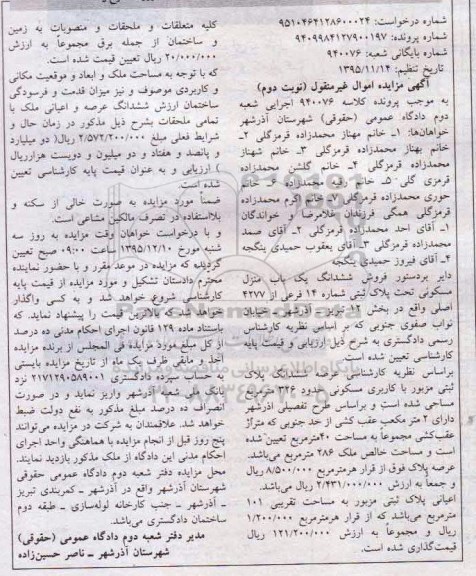 شماره درخواست: ۹۵۱۰۴۶۴۱۲۸۶۰۰۰۲۴
شماره پرونده: ۹۴۰۹۹۸۴۱۲۷۹۰۰۱۹۷
شماره بایگانی شعبه: ۹۴۰۰۷۶
تاریخ تنظیم: ۱۳۹۵/۱۱/۱۴
آگهی مزایده اموال غیرمنقول (نوبت دوم)
به موجب پرونده کلاسه ۹۴۰۰۷۶ اجرایی شعبه
دوم دادگاه عمومی (حقوقی) شهرستان آذرشهر
خواهان‌ها: ۱ـ خانم مهناز محمدزاده قرمزگلی ۲ـ
خانم بهناز محمدزاده قرمزگلی ۳ـ خانم شهناز
محمدزاده قرمزگلی ۴ـ خانم گلشن محمدزاده
قرمزی گلی ۵ـ خانم رقیه محمدزاده ۶ـ خانم
حوری محمدزاده قرمزگلی ۷ـ خانم اکرم محمدزاده
قرمزگلی همگی فرزندان غلامرضا و خواندگان
۱ـ آقای احد محمدزاده قرمزگلی ۲ـ آقای صمد
محمدزاده قرمزگلی ۳ـ آقای یعقوب حمیدی ینگجه
۴ـ آقای فیروز حمیدی ینگجه
دایر بدستور فروش ششدانگ یک باب منزل
مسکونی تحت پلاک ثبتی شماره ۱۴ فرعی از ۴۲۷۷
اصلی واقع در بخش ۱۳ تبریز ـ آذرشهر ـ خیابان
نواب صفوی جنوبی که بر اساس نظریه کارشناس
رسمی دادگستری به شرح ذیل ارزیابی و قیمت پایه
کارشناسی تعیین شده است.
براساس نظریه کارشناسی عرصه ششدانگ پلاک
ثبتی مزبور با کاربری مسکونی حدود ۳۲۶ مترمربع
مساحی شده است و براساس طرح تفصیلی آذرشهر
دارای ۲ متر مکعب عقب کشی از حد جنوبی که متراژ
عقب‌کشی مجموعاً به مساحت ۴۰مترمربع تعیین شده
است و مساحت خالص ملک ۲۸۶ مترمربع می‌باشد.
عرصه پلاک فوق از قرار هرمترمربع ۸/۵۰۰/۰۰۰ ریال
و جمعاً به ارزش ۲/۴۳۱/۰۰۰/۰۰۰ ریال می‌باشد.
اعیانی پلاک ثبتی مزبور به مساحت تقریبی ۱۰۱
مترمربع می‌باشد که از قرار هرمترمربع ۱/۲۰۰/۰۰۰
ریال و مجموعاً به ارزش ۱۲۱/۲۰۰/۰۰۰ ریال
قیمت‌گذاری شده است.
کلیه متعلقات و ملحقات و منصوبات به زمین
و ساختمان از جمله برق مجموعاً به ارزش
۲۰/۰۰۰/۰۰۰ ریال تعیین قیمت شده است.
که با توجه به مساحت ملک و ابعاد و موقعیت مکانی
و کاربردی موصوف و نیز میزان قدمت و فرسودگی
ساختمان ارزش ششدانگ عرصه و اعیانی ملک با
تمامی ملحقات بشرح ذیل مذکور در زمان حال و
شرایط فعلی مبلغ ۲/۵۷۲/۲۰۰/۰۰۰ ریال( دو میلیارد
و پانصد و هفتاد و دو میلیون و دویست هزارریال
) ارزیابی و به عنوان قیمت پایه کارشناسی تعیین
شده است.
ضمناً مورد مزایده به صورت خالی از سکنه و
بلااستفاده در تصرف مالکین مشاعی است.
و با درخواست خواهان وقت مزایده به روز سه
شنبه مورخ ۱۳۹۵/۱۲/۱۰ ساعت ۰۹:۰۰ صبح تعیین
گردیده که مزایده در موعد مقرر و با حضور نماینده
محترم دادستان تشکیل و مورد مزایده از قیمت پایه
کارشناسی شروع خواهد شد و به کسی واگذار
خواهد شد که بالاترین قیمت را پیشنهاد نماید. که
باستناد ماده ۱۲۹ قانون اجرای احکام مدنی ده درصد
از کل مبلغ مورد مزایده فی المجلس از برنده مزایده
اخذ و مابقی ظرف یک ماه از تاریخ مزایده بایستی
بحساب سپرده دادگستری ۲۱۷۱۲۹۰۵۸۹۰۰۱ نزد
بانک ملی شعبه آذرشهر واریز نماید و در صورت
انصراف ده درصد مبلغ مذکور به نفع دولت ضبط
خواهد شد. علاقمندان به شرکت در مزایده می‌توانند
پنج روز قبل از انجام مزایده با هماهنگی واحد اجرای
احکام مدنی این دادگاه از ملک مذکور بازدید نمایند.
محل مزایده دفتر شعبه دوم دادگاه عمومی حقوقی
شهرستان آذرشهر واقع در آذرشهر ـ کمربندی تبریز
ـ آذرشهر ـ جنب کارخانه لوله‌سازی ـ طبقه دوم
ساختمان دادگستری می‌باشد.
مدیر دفتر شعبه دوم دادگاه عمومی (حقوقی)
شهرستان آذرشهر ـ ناصر حسین‌زاده